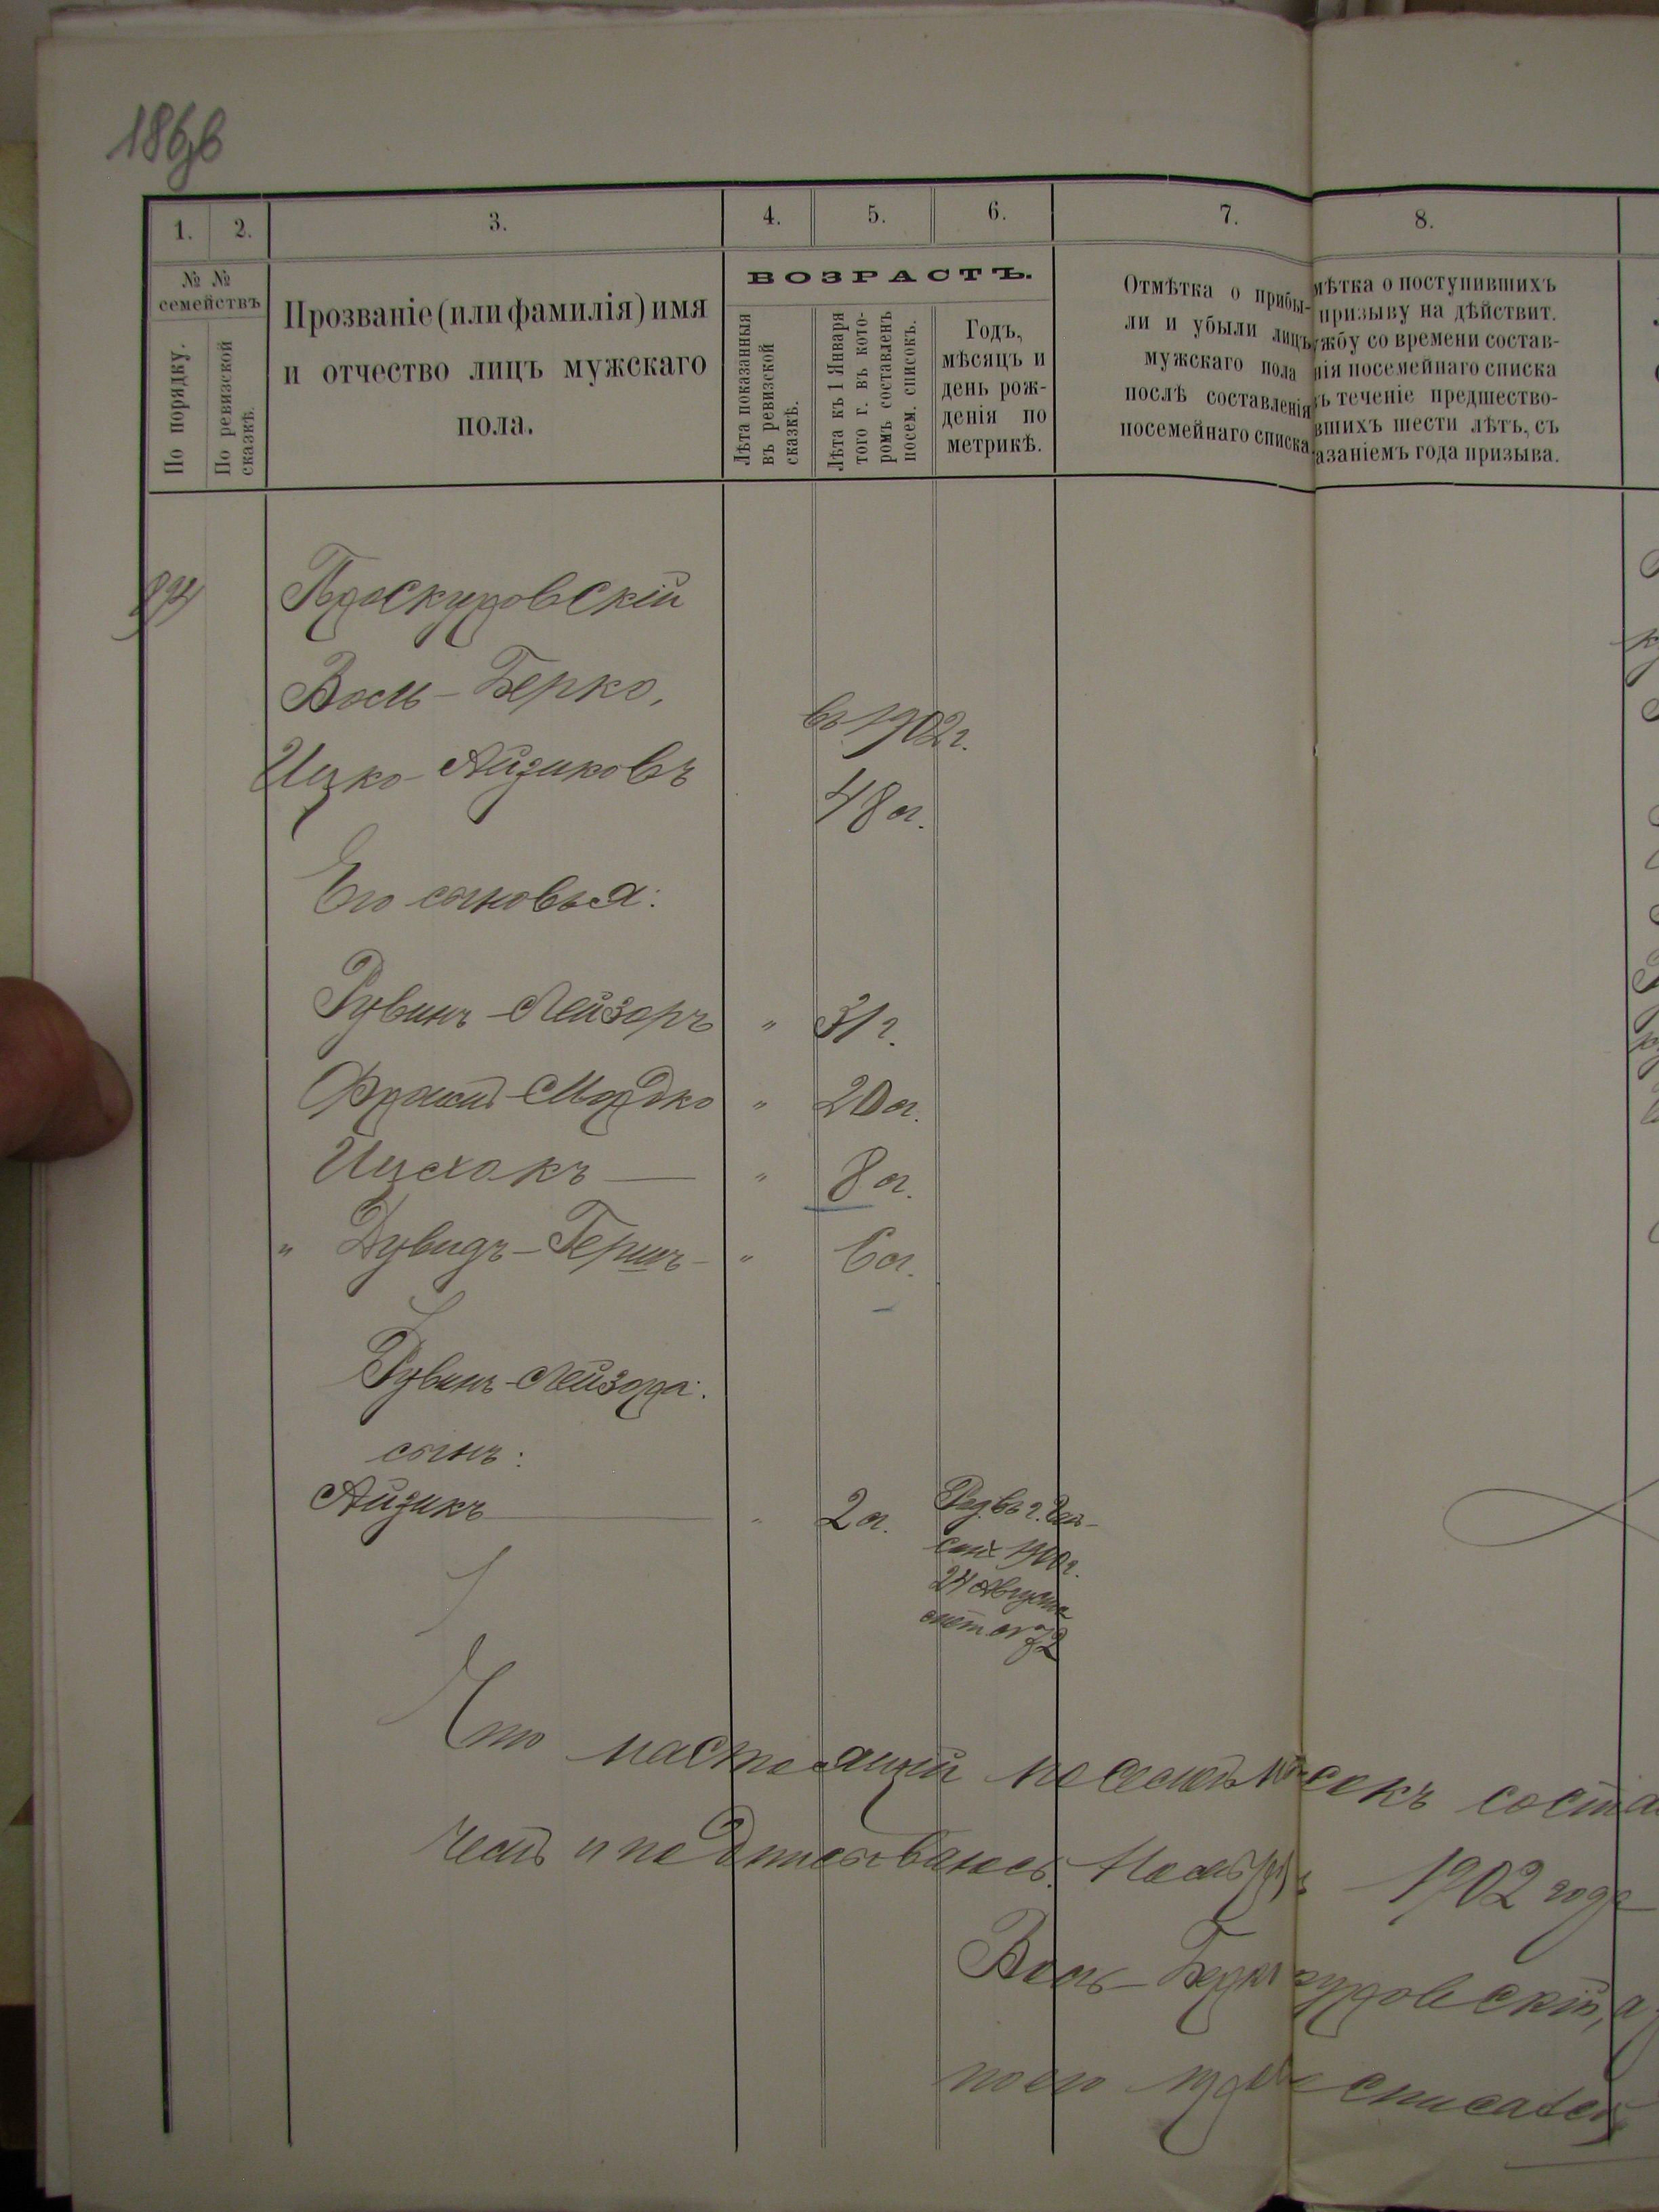 1. 2. 3. 4. 5. 6. 7. 8.
№ № семействъ
По порядку.
По ревизской сказкѣ.
Прозваніе (или фамилія) имя
и отчество лицъ мужскаго
пола.
ВОЗРАСТЪ.
Лѣта показанныя
въ ревизской
сказкѣ.
Лѣта къ 1 Января
того г. въ кото-
ромъ составленъ
посем. списокъ.
Годъ,
мѣсяцъ и
день рож-
денія по
метрикѣ.
Отмѣтка о прибы-
ли и убыли лицъ
мужскаго пола
послѣ составленія
посемейнаго списка
мѣтка о поступившихъ
призыву на дѣйствит.
ужбу со времени состав-
нія посемейнаго списка
ъ теченіе предшество-
вшихъ шести лѣтъ, съ
азаніемъ года призыва.
Проскуровскій
Воль-Берко,
въ 1902 г.
Ицко-Айзиковъ
48 л.
Его сыновья:
Рувинъ-Лейзоръ " 31 г.
Мордко " 20 л.
Ицхокъ — " 8 л.
" Дувидъ-Гершъ - " 6 л.
Рувинъ-Лейзора:
сынъ:
Айзикъ " 2 л.
Род. въ г.
1900 г.
24 Августа
Что настоящій
и подписываюсь. 1902 года
Воль-
уровскій, а